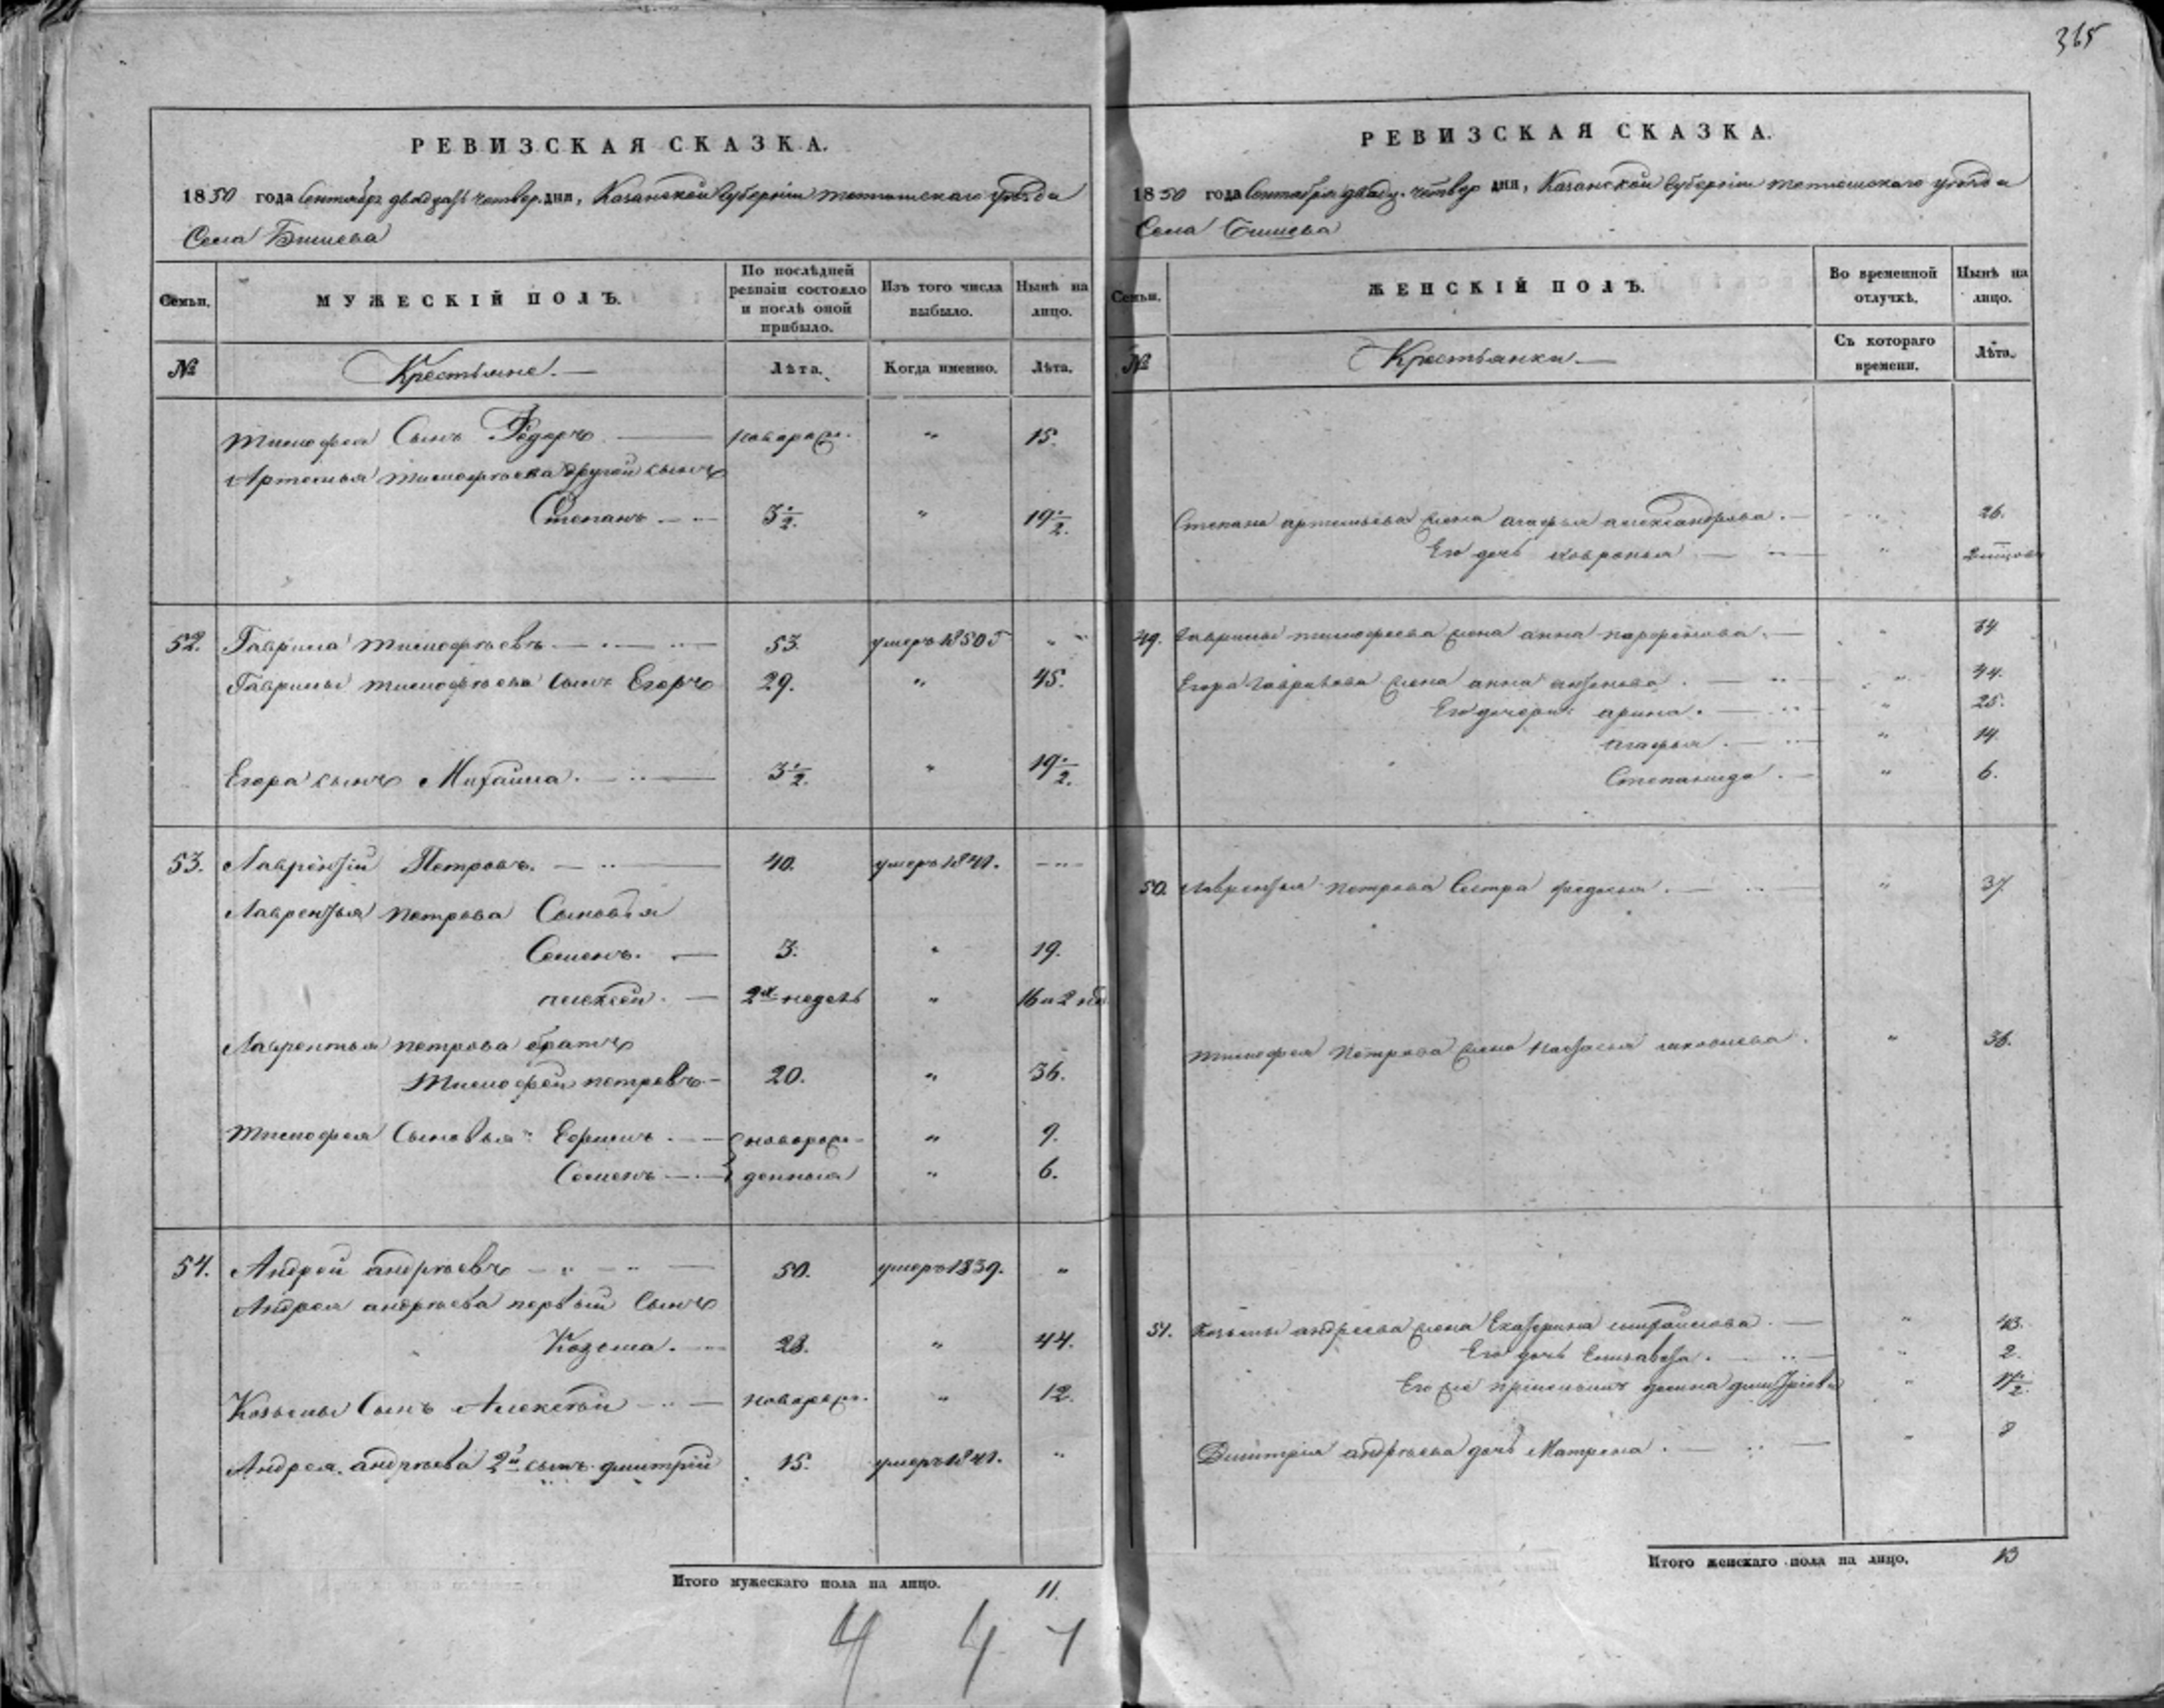 365
РЕВИЗСКАЯ СКАЗКА.
1850 года Сентября двадцать четвер. дня, Казанской Губерніи Тетюшскаго уѣзда
Села Бишева
Семьи. МУЖЕСКІЙ ПОЛЪ. По послѣдней ревизіи состояло и послѣ оной прибыло. Изъ того числа выбыло. Нынѣ на лицо.
№ Крестьяне. Лѣта. Когда именно. Лѣта.
Тимофея Сынъ Ѳедоръ новорож. " 15.
Артемья Тимофѣева другой сынъ
Степанъ 3 1/2. " 19 1/2.
52. Гаврила Тимофѣевъ 53. умеръ 1850 " "
Гаврилы Тимофѣева сынъ Егоръ 29. " 45.
Егора сынъ Михайла. 3 1/2. " 19 1/2.
53. Лаврентій Петровъ. 40. умеръ 1841. "
Лаврентья Петрова Сыновья
Семенъ. 3. " 19.
алексей. 2х недель " 16 и 2 нед
Лаврентья петрова братъ
Тимофей петровъ 20. " 36.
Тимофея Сыновья: Ефимъ. новорож- " 9.
Семенъ денныя " 6.
54. Андрей андрѣевъ 50. умеръ 1839. "
Андрея андрѣева первый Сынъ
Козьма. 28. " 44.
Козьмы Сынъ Алексѣй новорож. " 12.
Андрея андрѣева 2й сынъ дмитрій 15. умеръ 1841. "
Итого мужескаго пола на лицо. 11.
4 4 1
РЕВИЗСКАЯ СКАЗКА.
1850 года Сентября двадц. четвер дня, Казанской Губерніи Тетюшскаго уѣзда
Села Бишева
Семьи. ЖЕНСКІЙ ПОЛЪ. Во временной отлучкѣ. Нынѣ на лицо.
№ Крестьянки Съ котораго времени. Лѣта.
Степана артемьева жена агафья александрова. " 26.
Его дочь хавронья "
49. Гаврилы тимофеева жена анна "
Егора Гаврилова жена анна " 44.
Его дочери: арина. " 25.
агафья. " 14.
Степанида. " 6.
50. Лаврентья петрова Сестра федосья. " 37.
Тимофея Петрова жена настасья яковлева. " 36.
51. Козьмы андреева жена Екатерина михайлова. " 43.
Его дочь Елизавета. " 2.
Его же дмитріева "
Дмитрія андрѣева дочь Матрена. " 8
Итого женскаго пола на лицо. 13